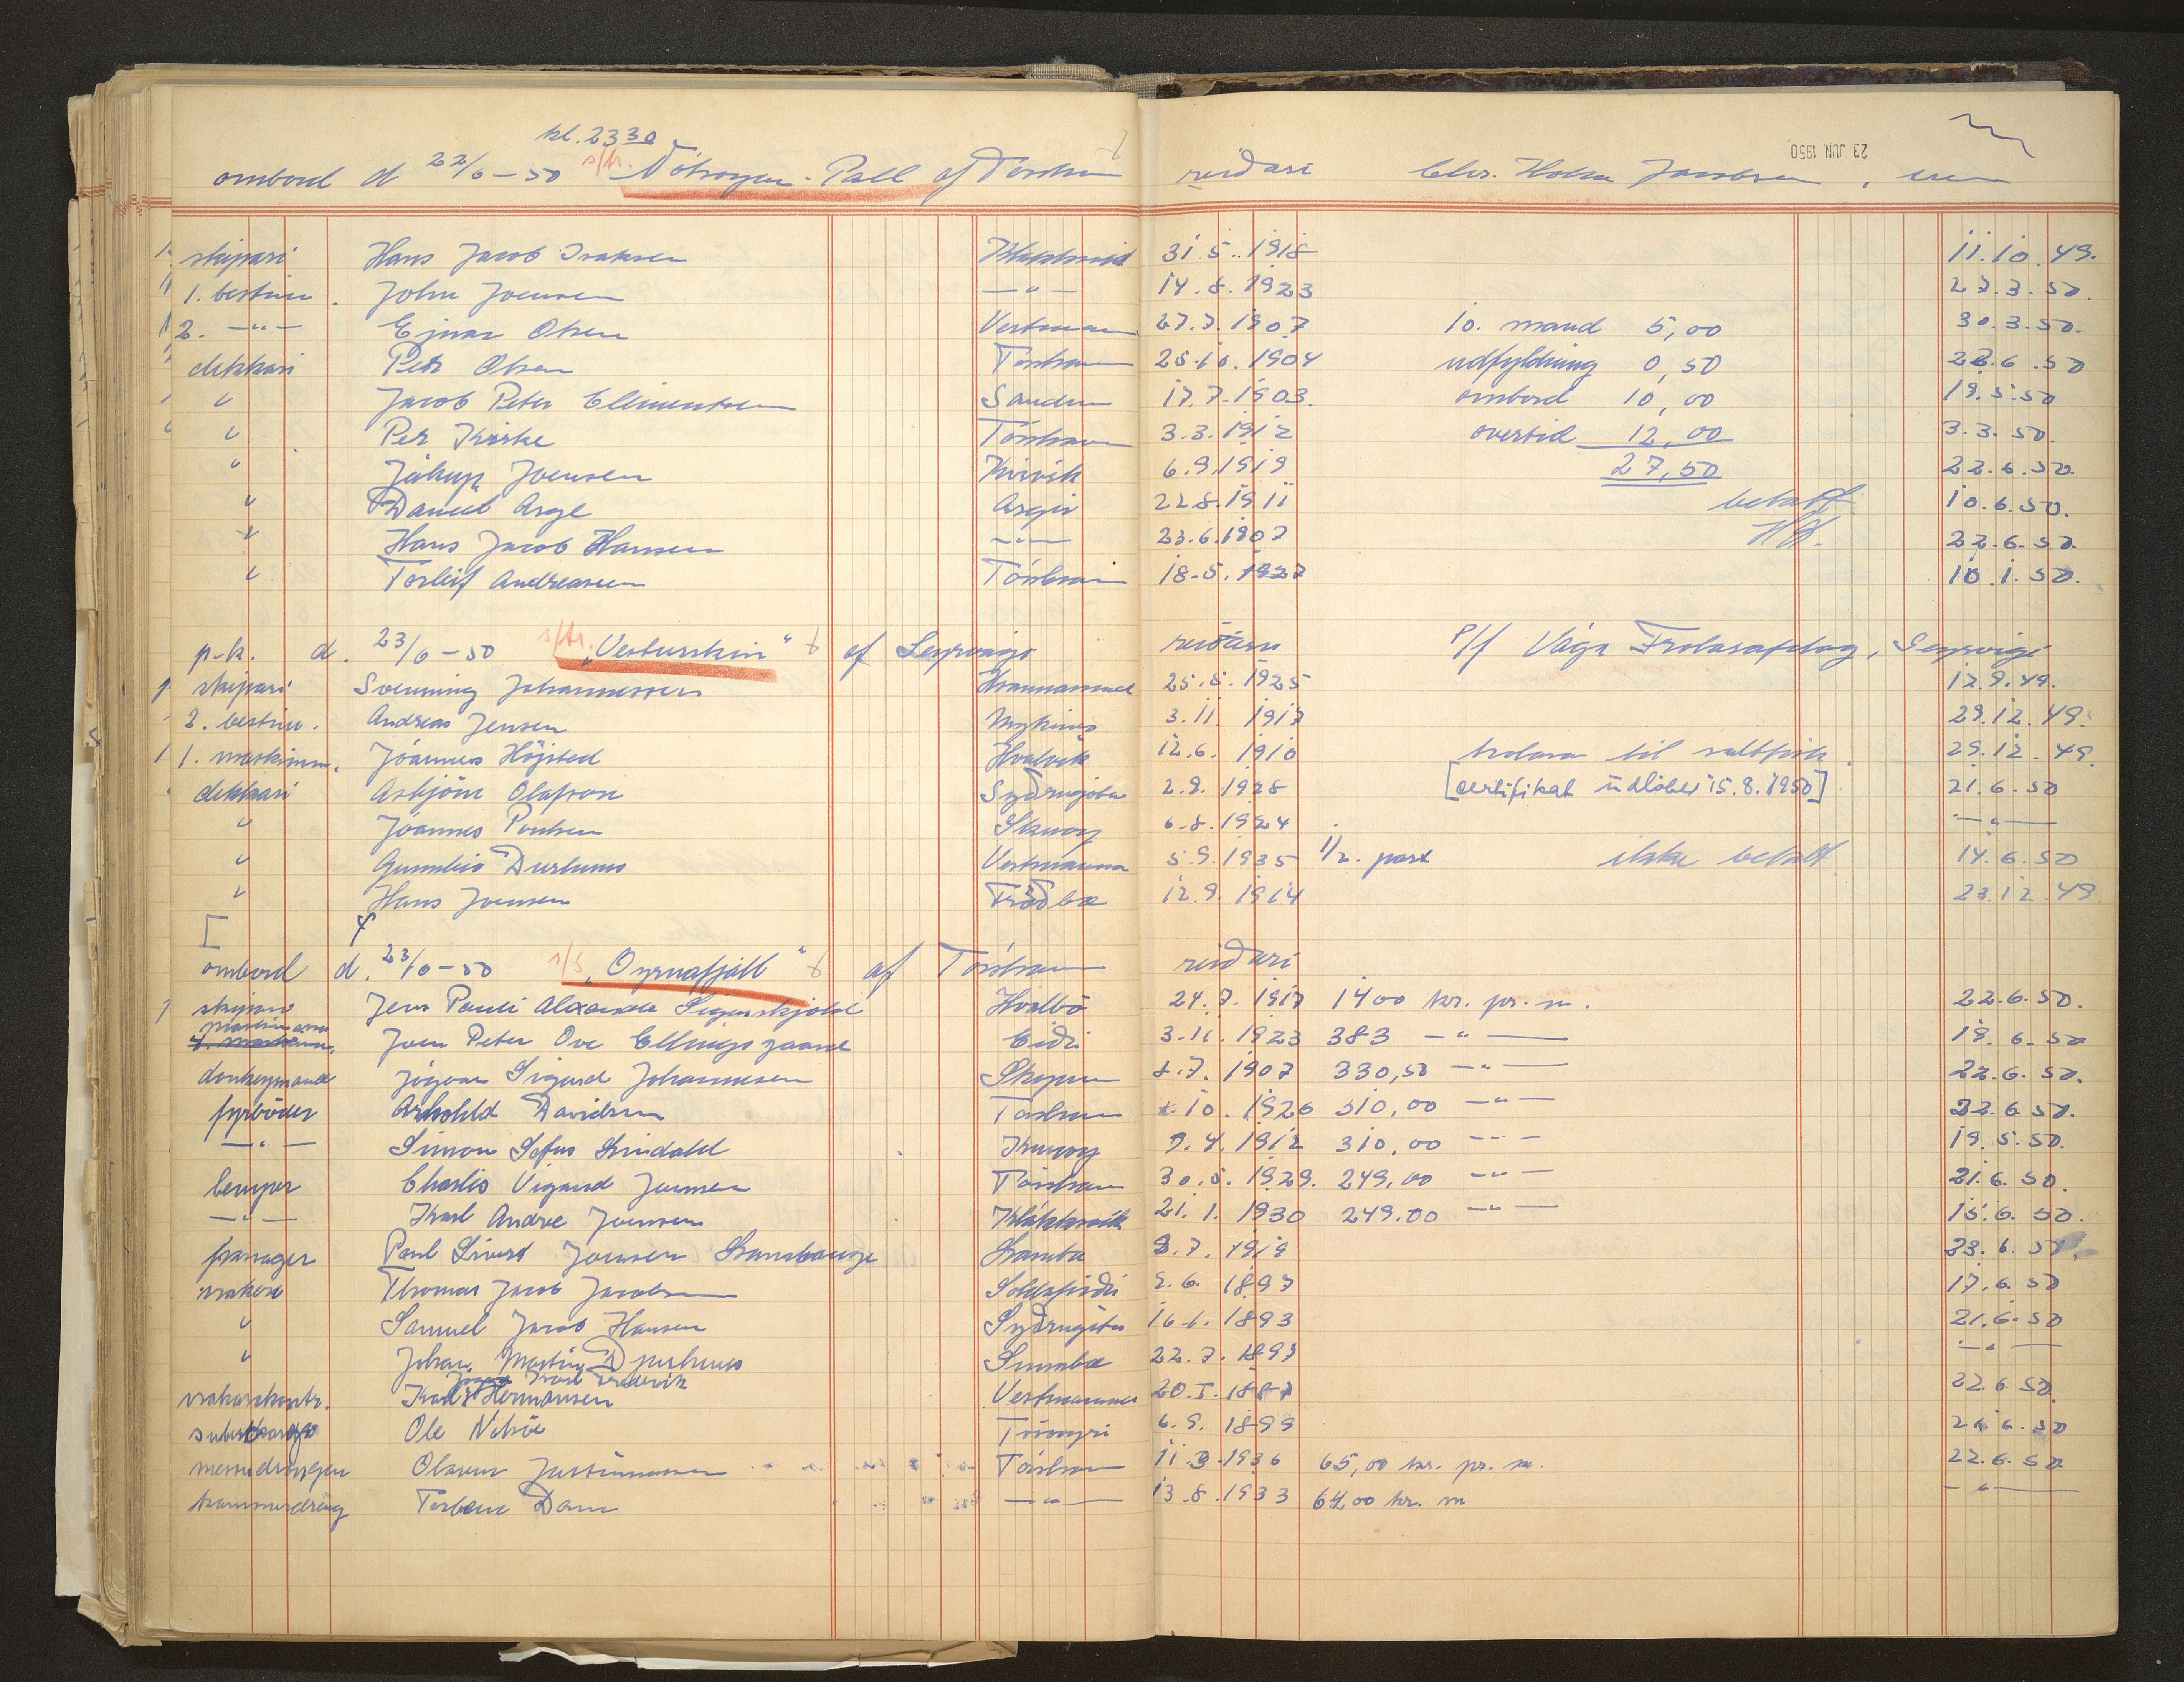 kl. 23 30
ombord d 22/6-50 s/tr. Nólsoyar-Páll af Tórshavn reiðari Chr. Holm Jacobsen,
23 JUN 1950
skipari Hans Jacob Isaksen Klakksvík 31.5.1918 11.10.49.
1. bestm. John Joensen —"— 14.8.1923 27.3.50.
2. —"— Ejnar Olsen Vestman 27.7.1907 10. mand 5,00 30.3.50.
dekkari Petr Olsen Tórshavn 25.10.1904 udfyldning 0,50 22.6.50
" Jacob Peter Clementsen Sandur 17.7.1903. ombord 10,00 19.5.50
" Per Kirke Tórshavn 3.3.1912 overtid 12,00 3.3.50.
" Jákup Joensen Kvívík 6.9.1919 27,50 22.6.50.
" Daniel Arge Argir 22.8.1911 betalt 10.6.50.
" Hans Jacob Hansen —"— 23.6.1907 22.6.50.
" Torleif Andreasen Tórshavn 18.5.1927 10.1.50.
p-k. d. 23/6-50 s/tr. "Vesturskin" af Sørvági reiðari P/f Vága Trolarafelag, Sørvági
skipari Svenning Johannessen Hvannasund 25.8.1925 12.9.49.
2. bestm. Andreas Jensen Mykines 3.11.1917 29.12.49.
1. maskinm. Jóannes Höjsted Hvalvík 12.6.1910 trolara til saltfisk 29.12.49.
dekkari Asbjörn Olafson Syðrugøtu 2.9.1928 [certifikat udløber 15.8.1950] 21.6.50
" Jóannes Poulsen Skuvoy 6.8.1924 —"—
" Gunnleif Durhuus Vestmanna 5.9.1935 1/2. part ikke betalt 14.6.50
" Hans Joensen Trøðba 12.9.1914 23.12.49
[
ombord d. 23/6-50 s/s "Oyrnafjall" af Tórshavn reiðari
skipari Jens Pauli Alexander Sigurskjöld Hvalbö 24.7.1917 1400 kr. pr. m. 22.6.50.
maskinmann Joen Peter Ove Ellingsgaard Eiði 3.11.1923 383 —"— 19.6.50
donkeymand Jógvan Sigurd Johannesen Skopun 8.7.1907 330,50 —"— 22.6.50.
fyrböder Arnhold Davidsen Tórshavn 10.1926 310,00 —"— 22.6.50.
—"— Simon Sofus Lindahl 9.4.1912 310,00 —"— 19.5.50.
lemper Charlis Vigand Joensen Tórshavn 30.5.1929. 249,00 —"— 21.6.50.
—"— Karl Andre Joensen Klakksvík 21.1.1930 249.00 —"— 15.6.50.
passager Paul Sivert Joensen Lambauge Lamba 8.7.1919 23.6.50.
vrakari Thomas Jacob Jacobsen Soldafirði 9.6.1897 17.6.50
" Samuel Jacob Hansen Syðrugøtu 16.6.1893 21.6.50
" Johan Martin Djurhuus Sumba 22.7.1897 —"—
Jógvan Karl Frederik
Karl Hermansen Vestmanna 20.I.1887 22.6.50
Ole Nolsöe Tórsoyri 6.9.1899 21.6.50
messedrengen Olavur Justinussen Tórshavn 11.3.1936 65,00 kr. pr. m. 22.6.50.
kammerdreng Torbern Dam —"— 13.8.1933 64,00 kr. m —"—